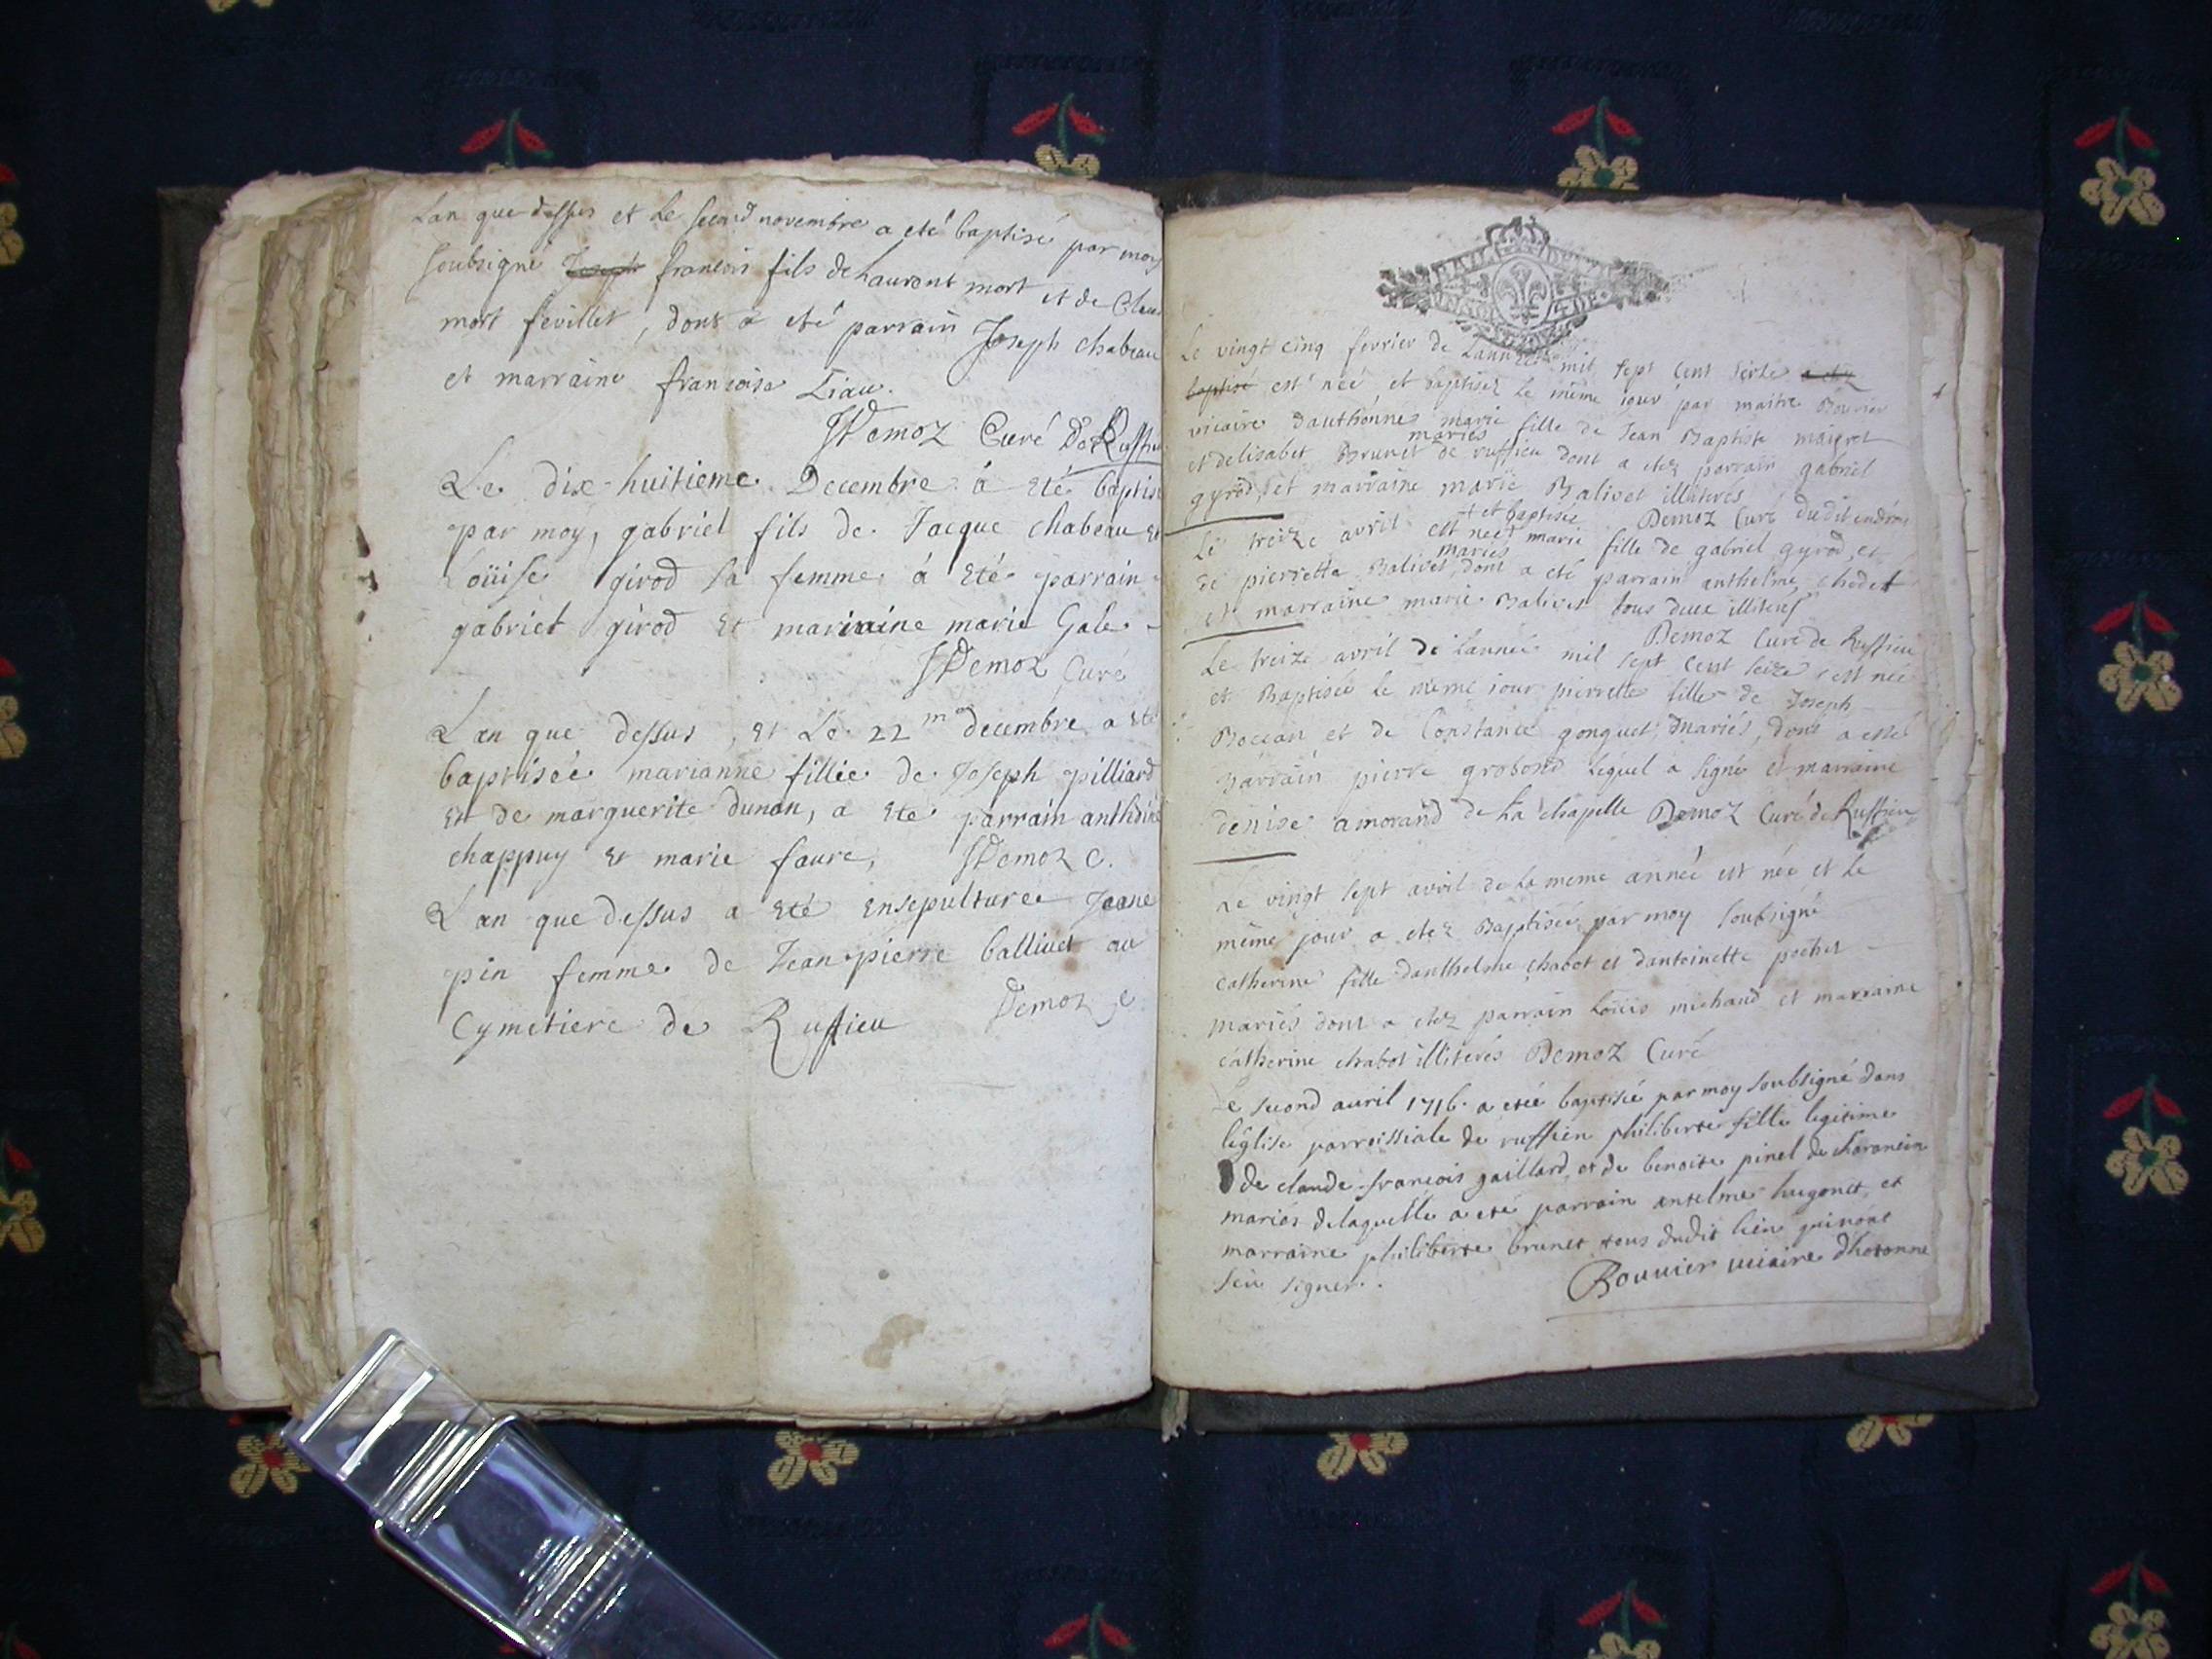 Lan que dessus et Le second novembre a eté baptisé par moy
soubsigné Joseph francois fils de Laurent mort et de Clau
mort fevillet, dont a eté parrain Joseph chabeau
et marraine francoise Liau.
Demoz Curé De Ruffieu
Le dix-huitieme Decembre á eté baptisé
par moy, gabriel fils de Jacque chabeau et
Loüise girod sa femme á eté parrain
gabriel girod et marraine marie Gale
Demoz Curé
Lan que dessus, et Le 22me decembre a eté
baptisée marianne fillie de Joseph pilliard
et de marguerite dunan, a eté parrain
chappuy et marie faure, Demoz c.
Lan que dessus a eté ensepulturee Jeane
pin femme de Jean pierre ballivet au
Cymetiere de Ruffieu Demoz c
Le vingt cinq fevrier de Lannee mil sept cent seize a etez
baptisé est neé et baptisez le même iour par maitre Bouvier
vicaire dauthonne marie fille de Jean Baptiste maigret
et delisabet Brunet mariés de ruffieu dont a etez parrain gabriel
gyrod, et marraine marie Balivet illiterés
Demoz Curé dudit endroit
Le treize avril est neé + et baptisée marie fille de gabriel gyrod et
de pierrette Balivet mariés dont a eté parrain anthelme chodet
et marraine marie Balivet tous deux illiterés
Demoz Curé de Ruffieu
Le treize avril de lanneé mil sept cent seize est neé
et Baptiseé le même iour pierrette fille de Joseph
Boccan et de Constance gonguet, mariés, dont a esté
parrain pierre grobond lequel a signé et marraine
denise amorand de La chapelle Demoz Curé de Ruffieu
Le vingt sept avril de la meme anneé est neé et le
même jour a etez Baptiseé par moy soubsigné
catherine fille danthelme chabot et dantoinette pochet
mariés dont a etez parrain Loüis michaud et marraine
catherine chabot illiterés Demoz Curé
Le second auril 1716. a eteé baptisée par moy soubsigné dans
léglise parroissiale de ruffieu philiberte fille legitime
de claude-francois gaillard, et de benoite pinel de charancin
mariés de laquelle a eté parrain antelme hugonet, et
marraine philiberte brunet tous dudit lieu qui nont
seu signer.
Bouuier uicaire dhotonne